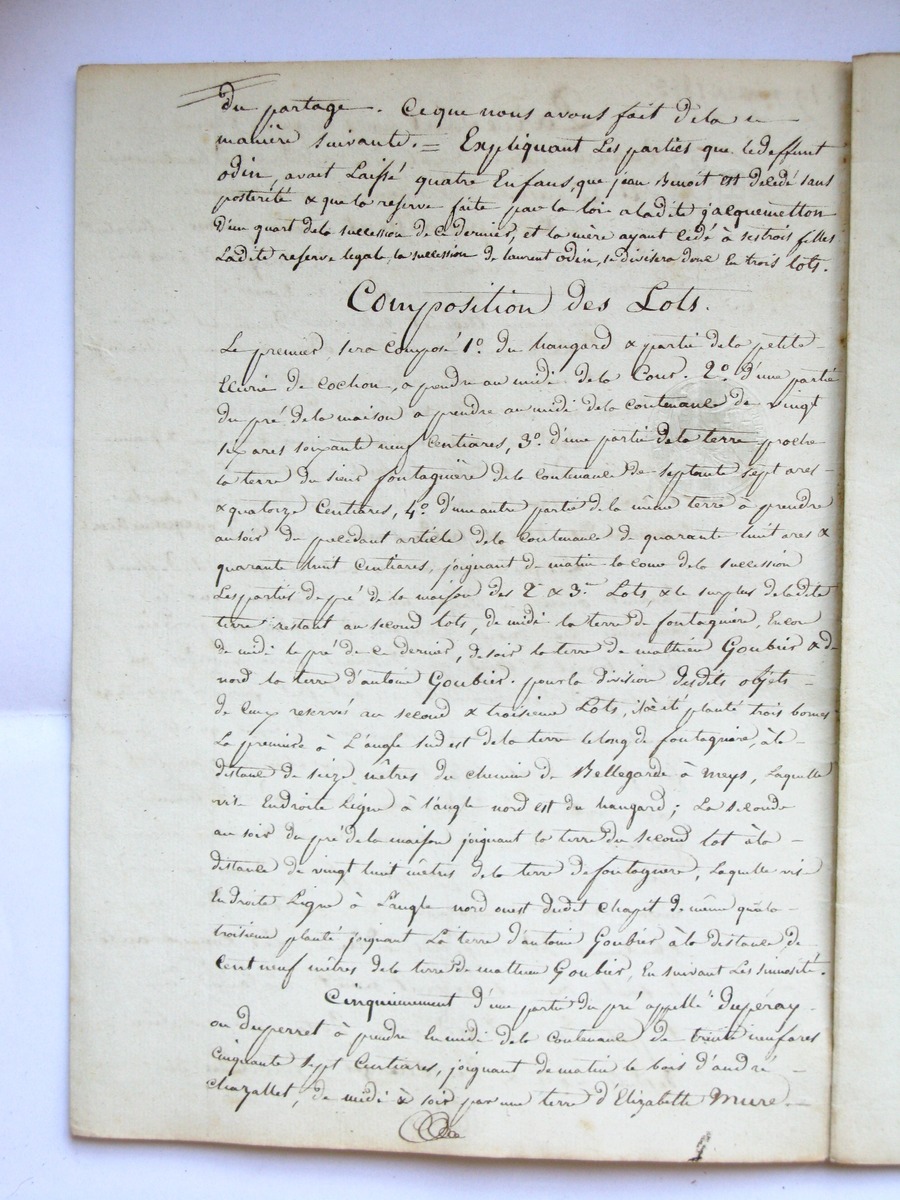 du partage. Ce que nous avons fait de la
manière suivante. = Expliquant Les parties que ledeffunt
odin, avait Laissé quatre Enfans, que jean Benoit est décédé sans
postérité & que la reserve faite par la loi a ladite jacquemetton
d'un quart dela succession de ce dernier, et la mère ayant cédé à ses trois filles
Ladite reserve legale, la succession de laurent odin, se divisera donc En trois lots.
Composition des Lots.
Le premier sera Composé 1o. du hangard & partie dela petite
Ecurie de cochon, a prendre au midi de la Cour. 2o. d'une partie
du pré de la maison a prendre au midi de la contenance de vingt
six ares soixante neuf Centiares, 3o. d'une partie de la terre proche
la terre du sieur fontaguère de la contenance de septante sept ares
& quatorze Centiares, 4o. d'une autre partie de la même terre à prendre
au soir du précédant article de la contenance de quarante huit ares &
quarante huit Centiares, joignant de matin la cour de la succession
Les parties de pré de la maison des 2e & 3me Lots, & le surplus de ladite
terre restant au second lots, de midi la terre de fontaguère, Encor
de midi le pré de ce dernier, de soir la terre de mathieu Goubier & de
nord la terre d'antoine Goubier. pour la division desdits objets
de Ceux reservés au second & troisieme Lots, il a été planté trois bornes
La premiere à L'angle sud est de la terre le long de fontaguère, à la
distance de seize mêtres du chemin de Bellegarde à meys, Laquelle
vise En droite Ligne à l'angle nord est du hangard; La seconde
au soir du pré de la maison joignant la terre du second lot à la
distance de vingt huit mêtres de la terre de fontaguere, Laquelle vise
En droite Ligne à L'angle nord ouest dudit chapit de même que la
troisieme planté joignant La terre d'antoine Goubier à la distance de
Cent neuf mêtres de la terre de mathieu Goubier, En suivant Les sinuosité.
Cinquiemement d'une partie du pré appellé duperay
ou duperret à prendre En midi de la Contenance de trente neuf ares
Cinquante sept Centiares, joignant de matin le bois d'andré
chazallet, de midi & soir par une terre d'Elizabette Mure.